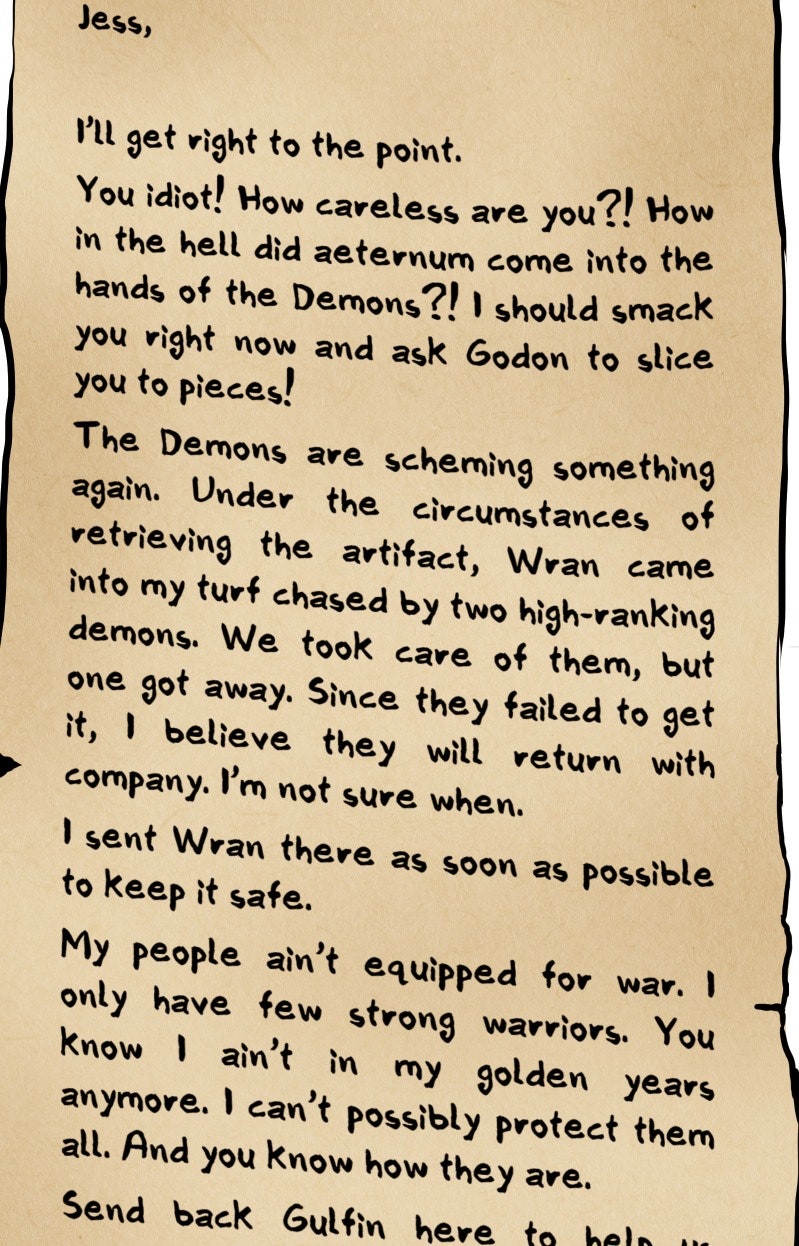 Jess,
I'll get right to the point.
You idiot! How careless are you?! How
in the hell did aeternum come into the
hands of the Demons?! I should smack
you right now and ask Godon to slice
you to pieces!
The Demons are scheming something
again. Under the circumstances of
retrieving the artifact, Wran came
into my turf chased by two high-ranking
demons. We took care of them, but
one got away. Since they failed to get
it, I believe they will return with
company. I'm not sure when.
I sent Wran there as soon as possible
to keep it safe.
My people ain't equipped for war. I
only have few strong warriors. You
know I ain't in my golden years
anymore. I can't possibly protect them
all. And you know how they are.
Send back Gulfin here to help